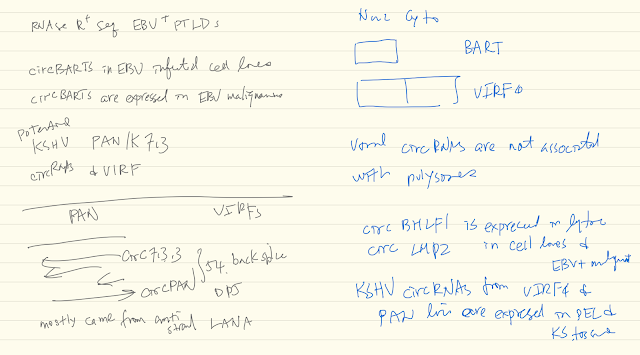 RNAse R+ seq EBV+ PTLDs
circBARTS in EBV infected cell lines
circBARTs are expressed in EBV malignancies
Potential
KSHV PAN/K7.3
circRNAs & VIRF
PAN VIRFs
circ7.3.3
circPAN 54 backsplice
mostly came from anti
strand LANA
Nuc Cyto
BART
VIRF4
Viral circRNAs are not associated
with polysomes
circ BHLF1 is expressed in lytic
circ LMP2 in cell lines &
EBV+ malignant
KSHV circRNAs from VIRF4 &
PAN loci are expressed in PEL &
KS tissues